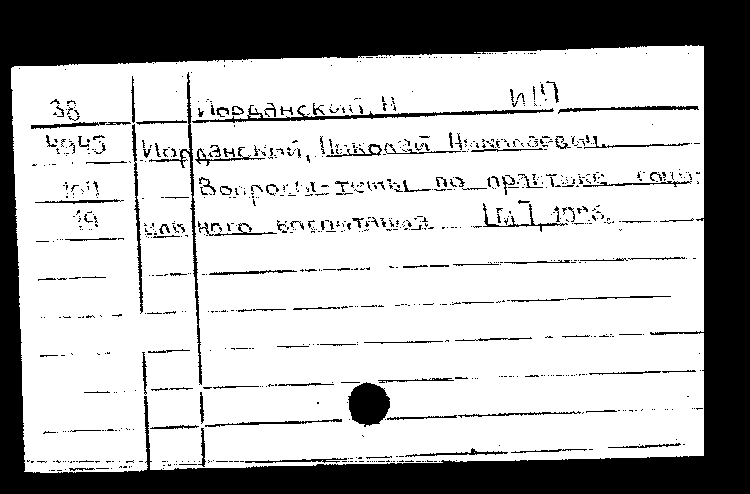 38 Иорданский, Н
4945 Иорданский, Николай Николаевич.
Вопросы-темы по практике соци-
19 ально­го воспитания [М], 1926.